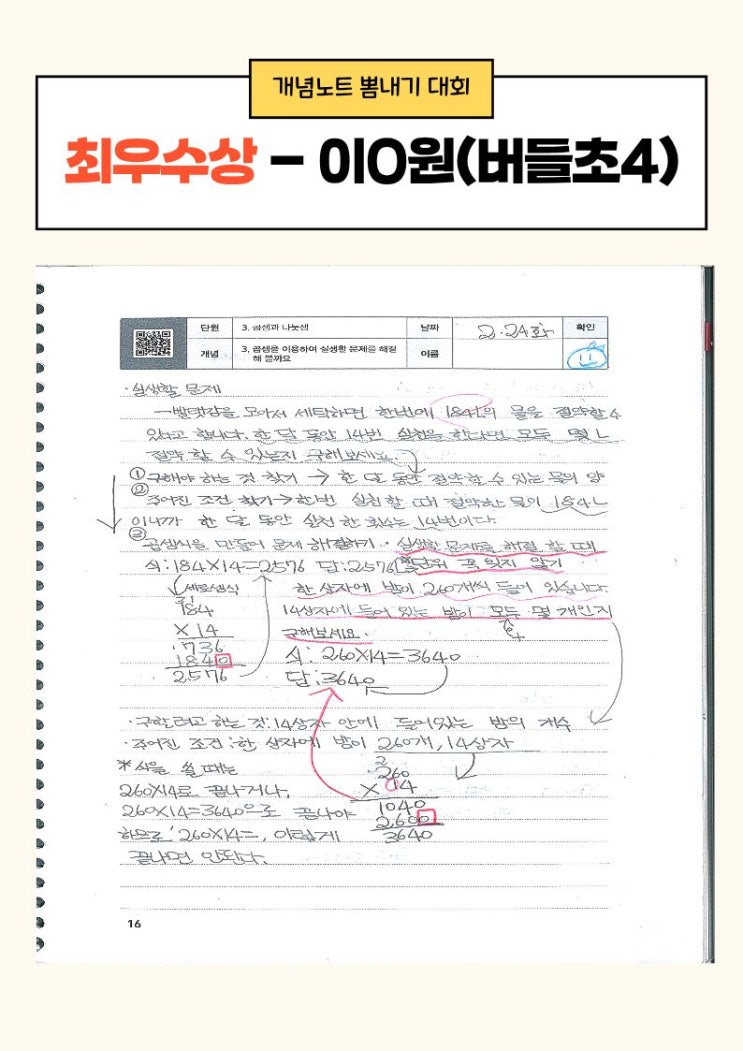 개념노트 뽐내기 대회
최우수상 - 이O원(버들초4)
단원 3. 곱셈과 나눗셈 날짜 2.24화 확인
개념 3. 곱셈을 이용하여 실생활 문제를 해결해 볼까요 이름
·실생활 문제
빨랫감을 모아서 세탁하면 한번에 184L의 물을 절약할 수
있다고 합니다. 한 달 동안 14번 실천을 한다면 모두 몇 L
절약 할 수 있는지 구해보세요.
① 구해야 하는 것 찾기 → 한 달 동안 절약할 수 있는 물의 양
② 주어진 조건 찾기→한번 실천할 때 절약한 물이 184L
이니까 한 달 동안 실천 한 횟수는 14번이다.
③ 곱셈식을 만들어 문제 해결하기. 실생활 문제를 해결 할 때
식:184×14=2576 답:2576 단위 꼭 잊지 않기
세로셈식 한 상자에 밤이 260개씩 들어 있습니다.
184 14상자에 들어 있는 밤이 모두 몇 개인지
×14 구해보세요.
736 식: 260×14=3640
1840 답:3640
2576
·구하려고 하는 것:14상자 안에 들어있는 밤의 개수
·주어진 조건:한 상자에 밤이 260개, 14상자
*식을 쓸 때는 2
260×14로 끝나거나, 260
260×14=3640으로 끝나야 ×14
하므로 '260×14=, 이렇게 1040
끝나면 안된다. 2600
3640
16